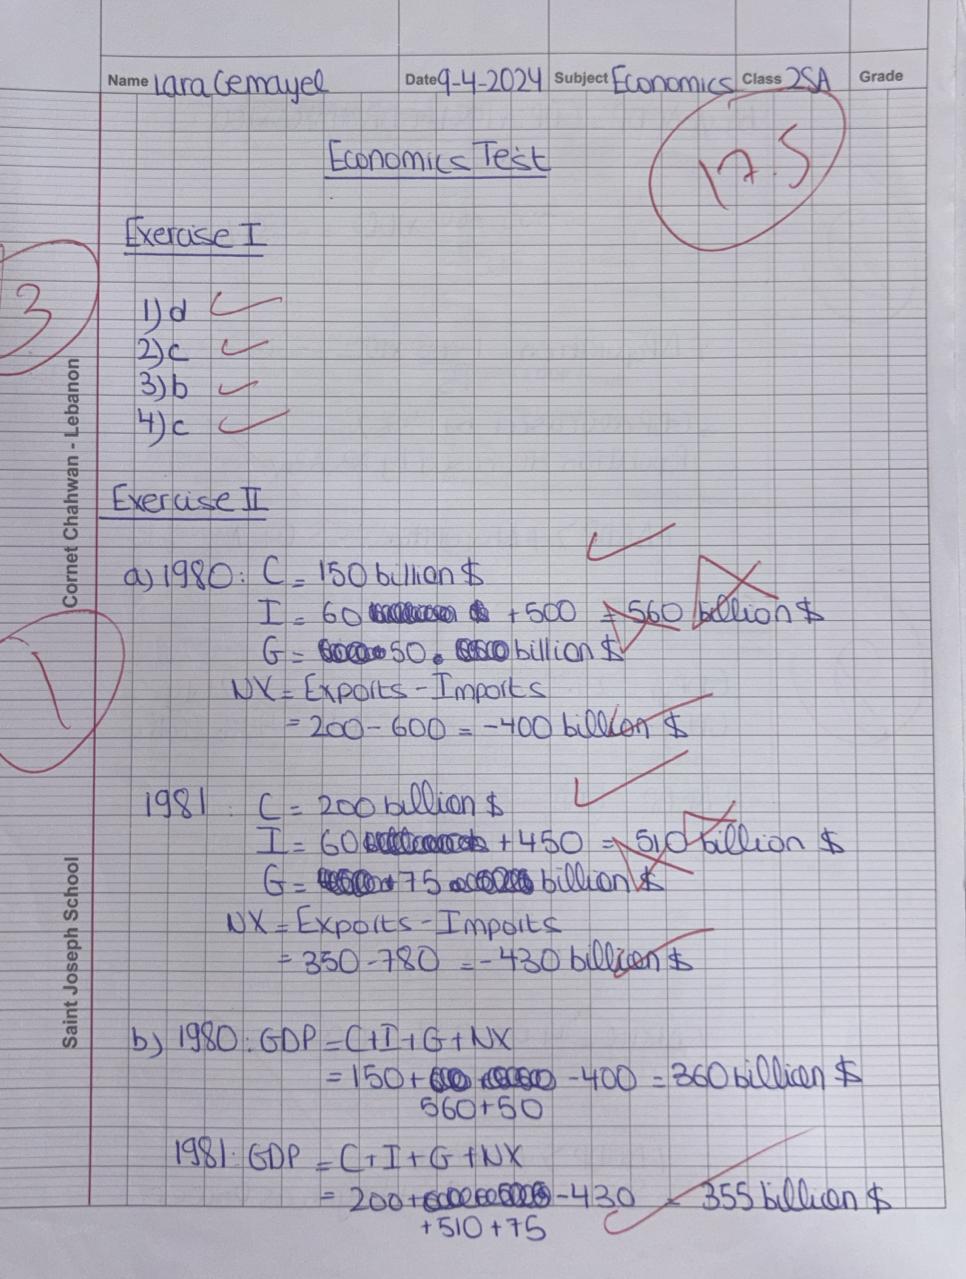 Name Lara Gemayel Date 9-4-2024 Subject Economics Class 2SA Grade
Economics Test
17.5
Exercise I
3
1) d
2) c
3) b
4) c
Cornet Chahwan - Lebanon
Exercise II
a) 1980: C = 150 billion $
I = 60 + 500 = 560 billion $
G = 50 billion $
NX = Exports - Imports
= 200 - 600 = -400 billion $
1981: C = 200 billion $
I = 60 + 450 = 510 billion $
G = 75 billion $
NX = Exports - Imports
= 350 - 780 = -430 billion $
Saint Joseph School
b) 1980: GDP = C+I+G+NX
= 150 + -400 = 360 billion $
560+50
1981: GDP = C+I+G+NX
= 200+ -430 = 355 billion $
+510+75